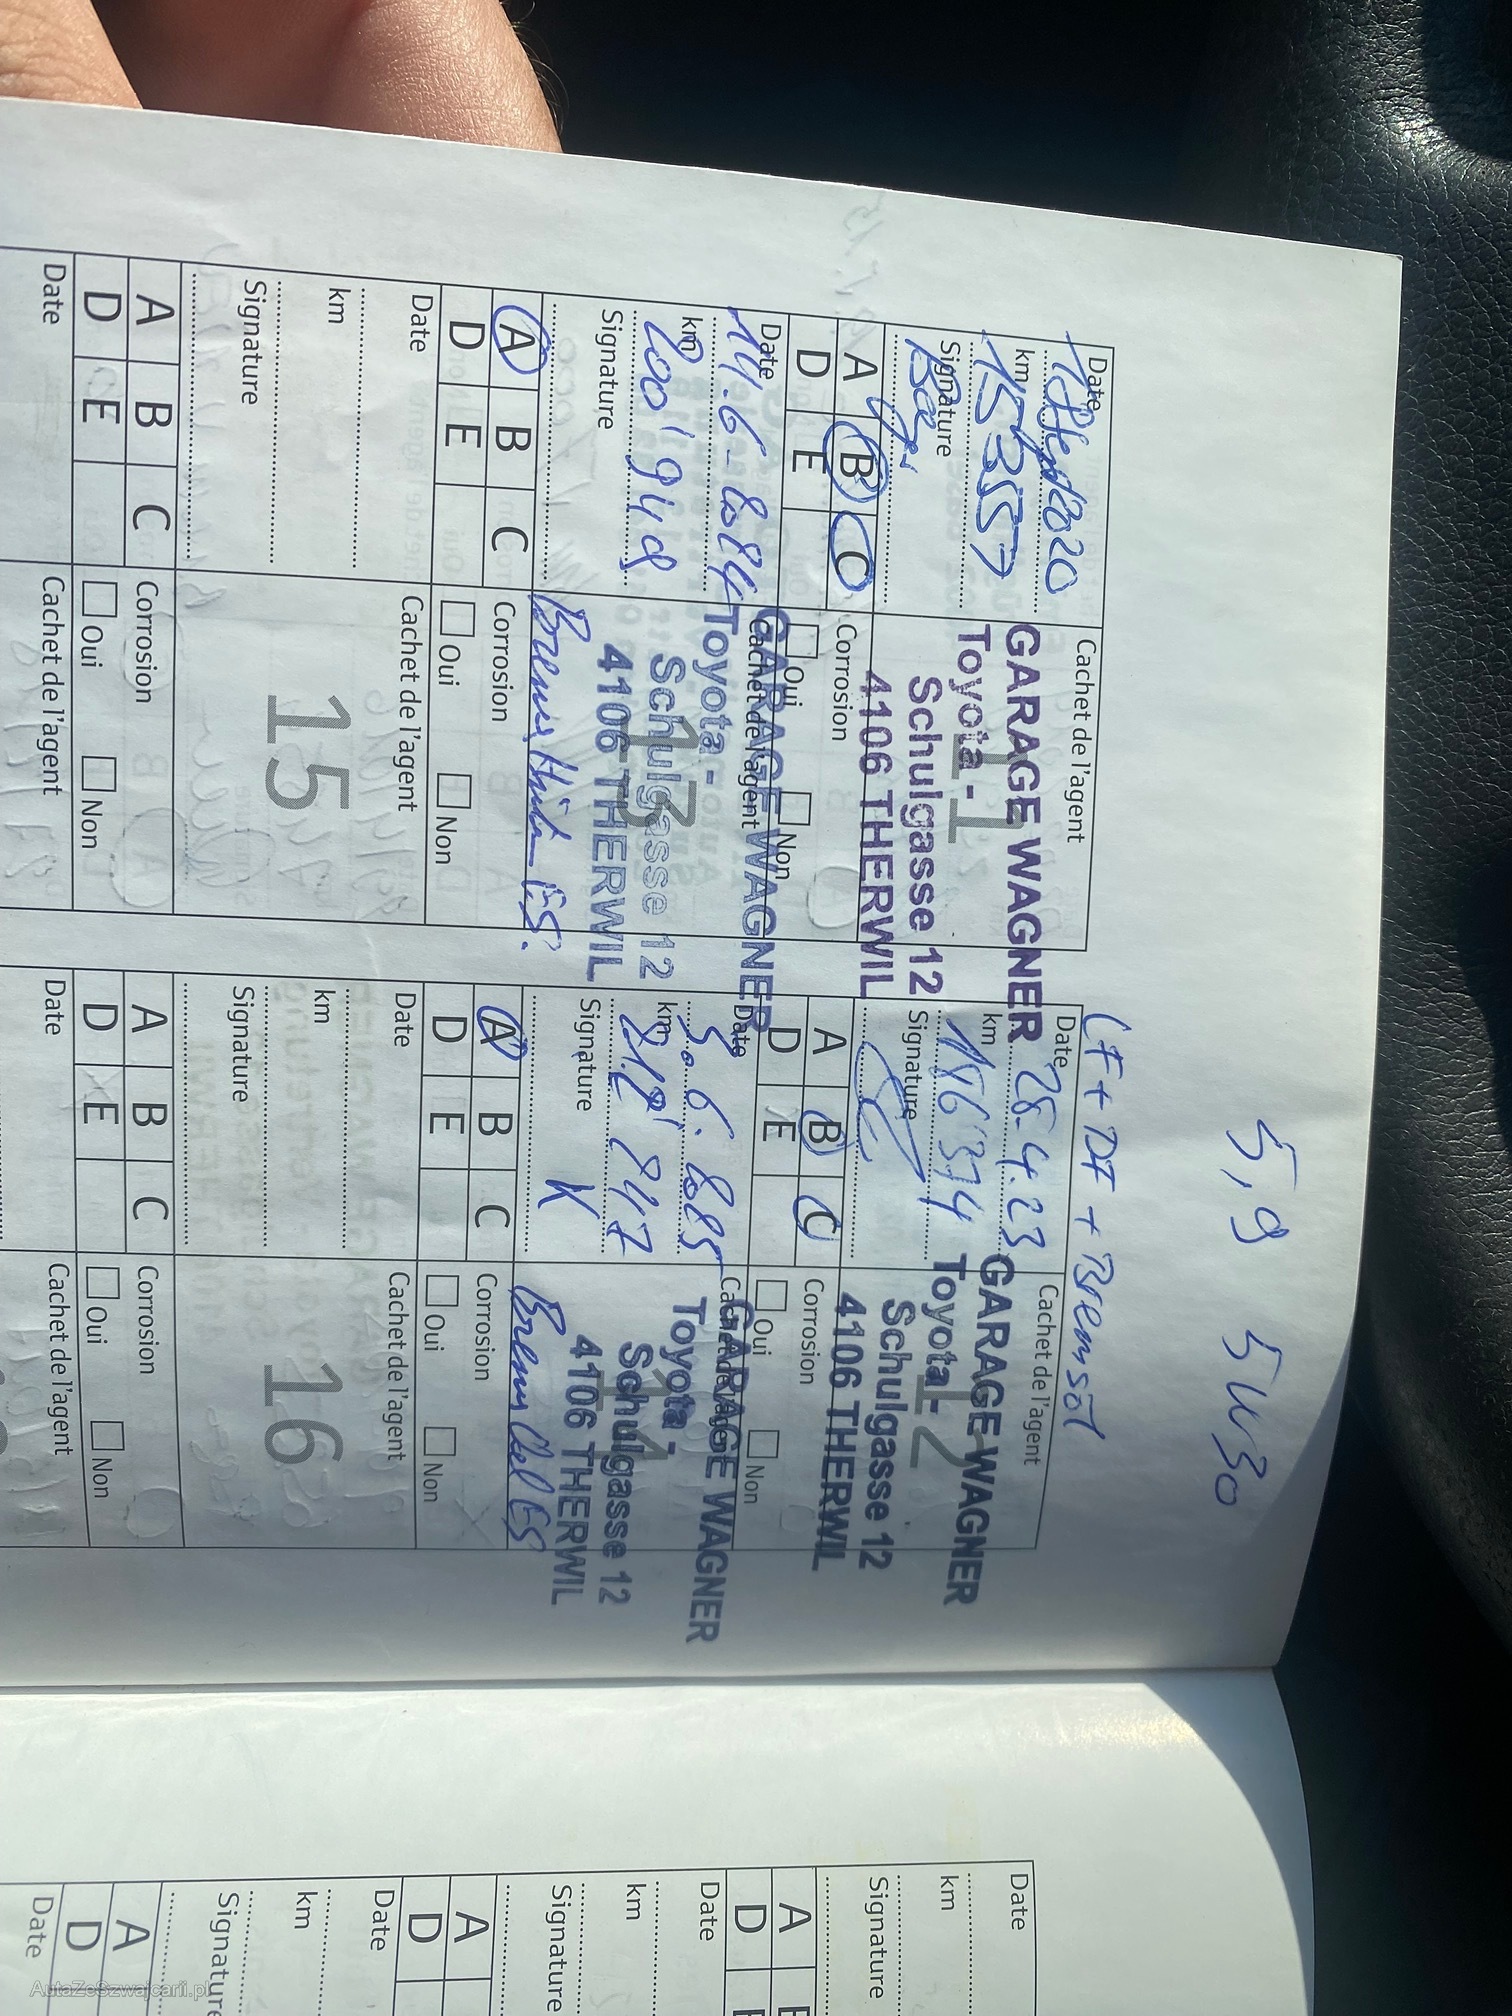 5,9 5W30
LF + DF + Bremsöl
Date
Cachet de l'agent
km
153557
Signature
11
GARAGE WAGNER
Toyota -
Schulgasse 12
4106 THERWIL
A B C
D E
Corrosion
Oui Non
Date 28.4.23
Cachet de l'agent
km 186'374
Signature
12
GARAGE WAGNER
Toyota -
Schulgasse 12
4106 THERWIL
A B C
D E
Corrosion
Oui Non
Date
14.6.2024
Cachet de l'agent
km
200'948
Signature
13
GARAGE WAGNER
Toyota -
Schulgasse 12
4106 THERWIL
A B C
D E
Corrosion
Oui Non
Date
5.6.2025
Cachet de l'agent
km
Signature
14
GARAGE WAGNER
Toyota -
Schulgasse 12
4106 THERWIL
A B C
D E
Corrosion
Oui Non
Date
Cachet de l'agent
km
Signature
15
A B C
D E
Corrosion
Oui Non
Date
Cachet de l'agent
km
Signature
16
A B C
D E
Corrosion
Oui Non
Date
Cachet de l'agent
Date
Cachet de l'agent
Date
km
Signature
A
D E
Date
km
Signature
A
D
Date
km
Signature
A
D
Date
AutaZeSzwajcarii.pl